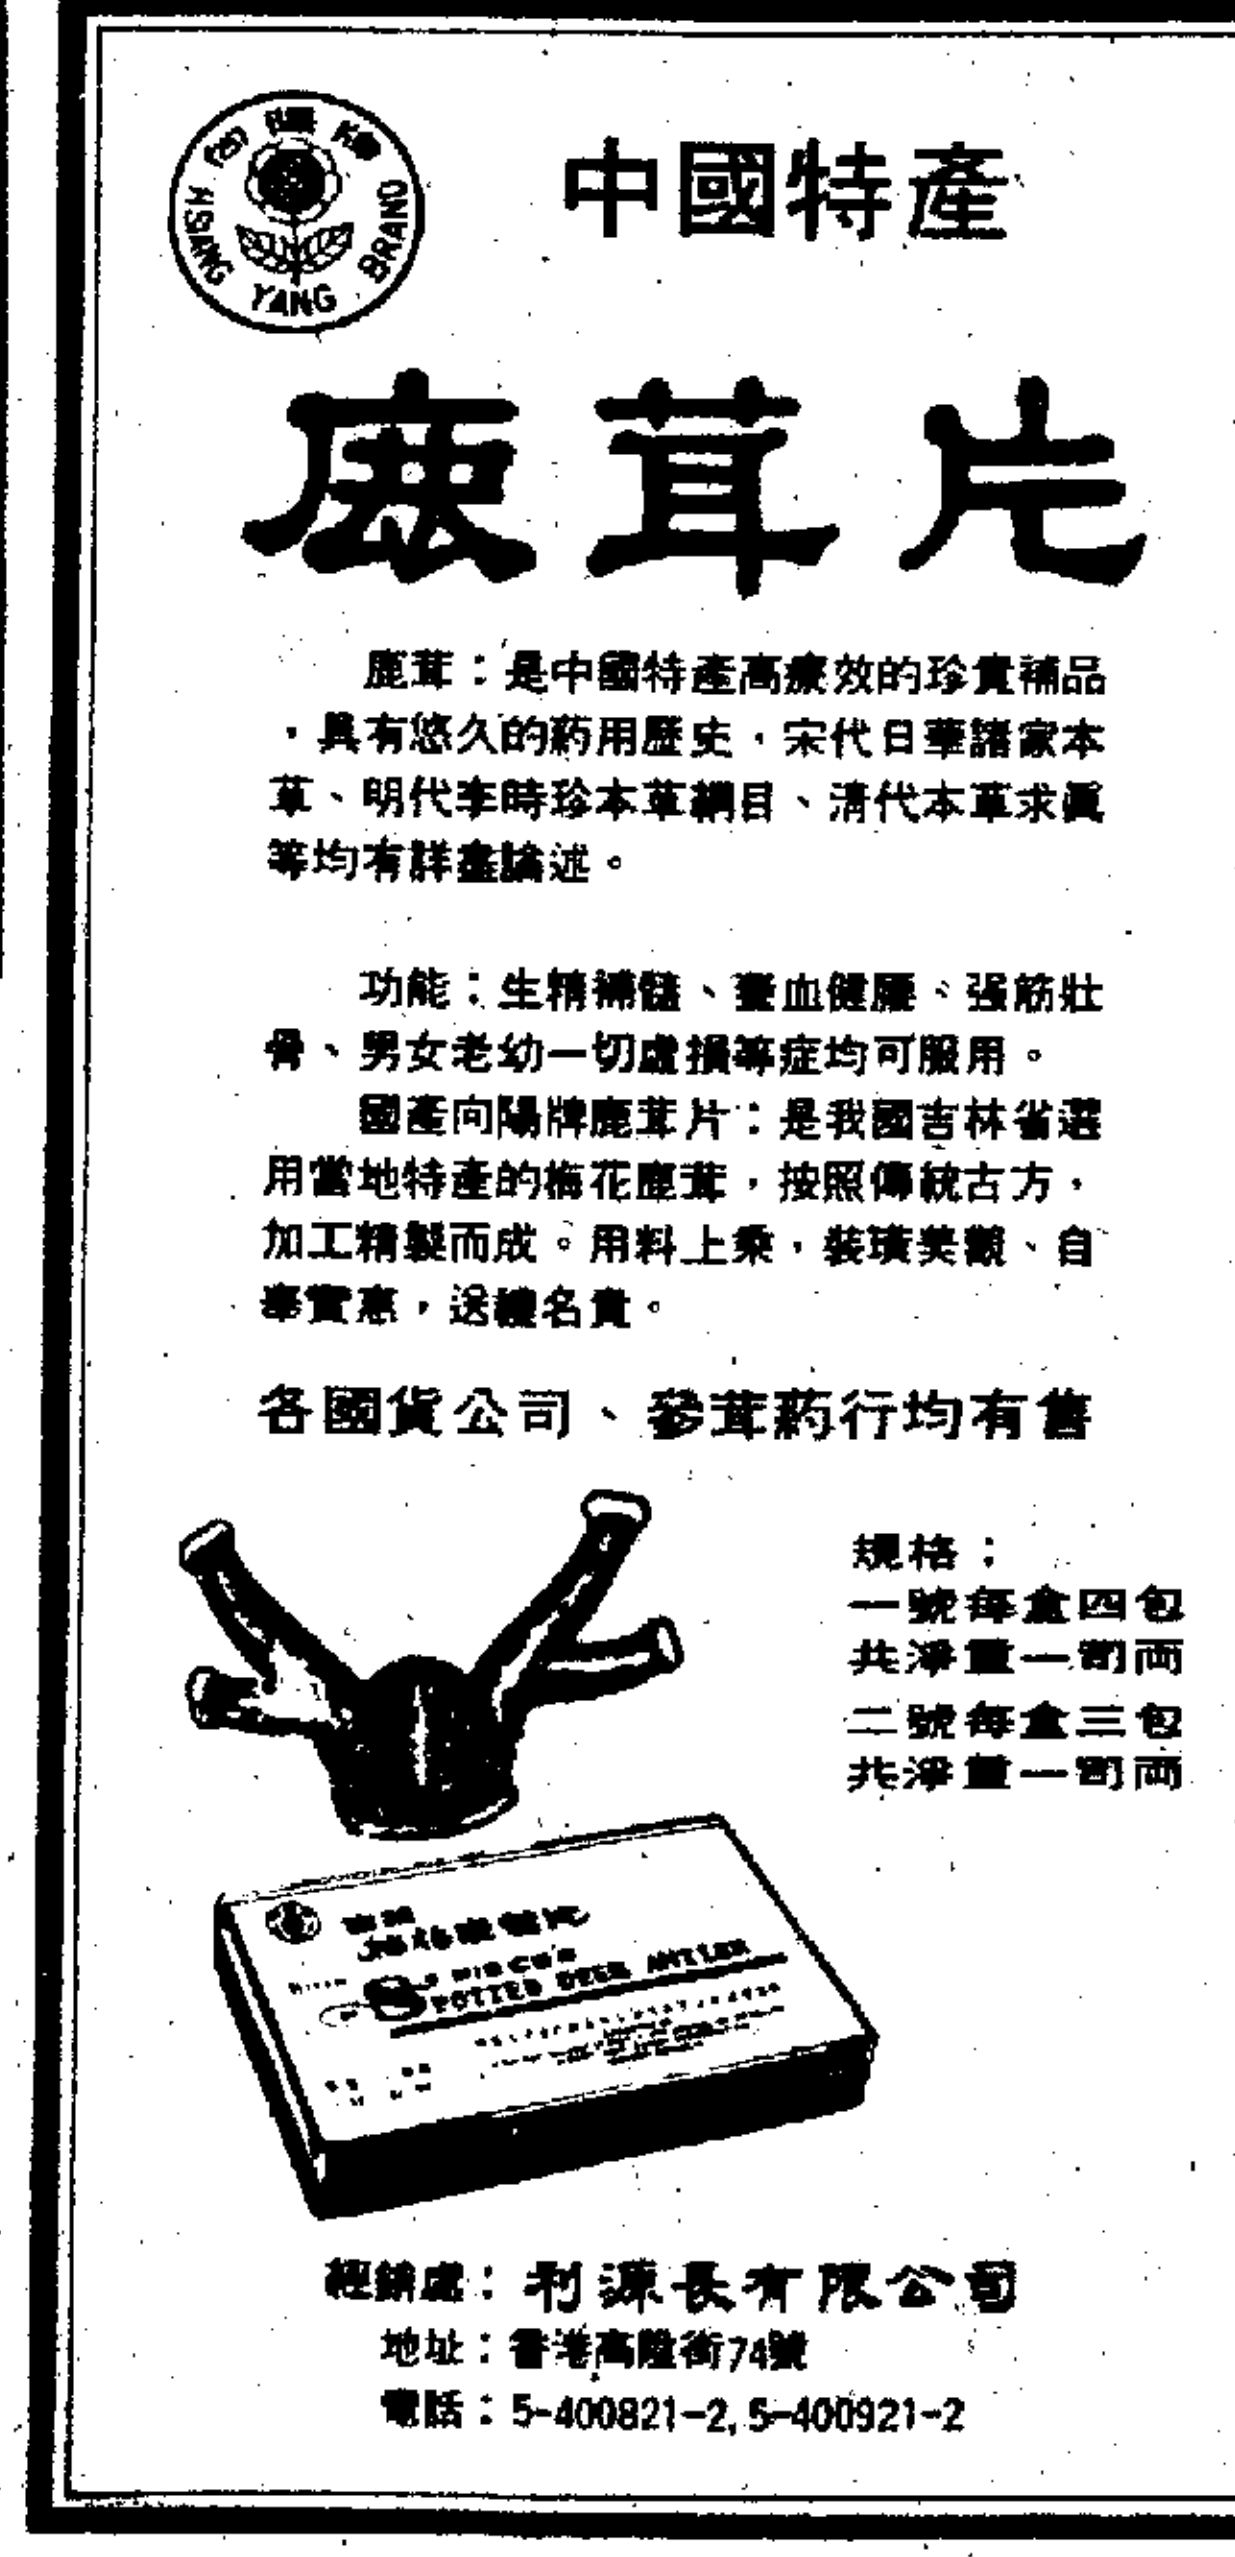 向陽牌
HSIANG YANG BRAND
中國特產
鹿茸片
鹿茸：是中國特產高療效的珍貴補品
，具有悠久的葯用歷史，宋代日華諸家本
草、明代李時珍本草綱目、清代本草求眞
等均有詳盡論述。
功能：生精補髓、養血健腰、强筋壯
骨、男女老幼一切虛損等症均可服用。
國產向陽牌鹿茸片：是我國吉林省選
用當地特產的梅花鹿茸，按照傳統古方，
加工精製而成。用料上乘，裝璜美觀、自
奉實惠，送禮名貴。
各國貨公司、參茸葯行均有售
規格：
一號每盒四包
共淨重一司両
二號每盒三包
共淨重一司両
SPOTTED DEER ANTLER
經銷處：利源長有限公司
地址：香港高陞街74號
電話：5-400821-2, 5-400921-2